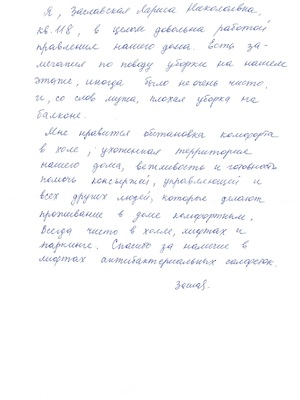 Я, Заславская Лариса Николаевна,
кв. 118, в целом довольна работой
правления нашего дома. Есть за-
мечания по поводу уборки на нашем
этаже, иногда было не очень чисто,
и, со слов мужа, плохая уборка на
балконе.
Мне нравится обстановка комфорта
в холле, ухоженная территория
нашего дома, вежливость и готовность
помочь консьержей, управляющей и
всех других людей, которые делают
проживание в доме комфортным.
Всегда чисто в холле, лифтах и
паркинге. Спасибо за наличие в
лифтах антибактериальных салфеток.